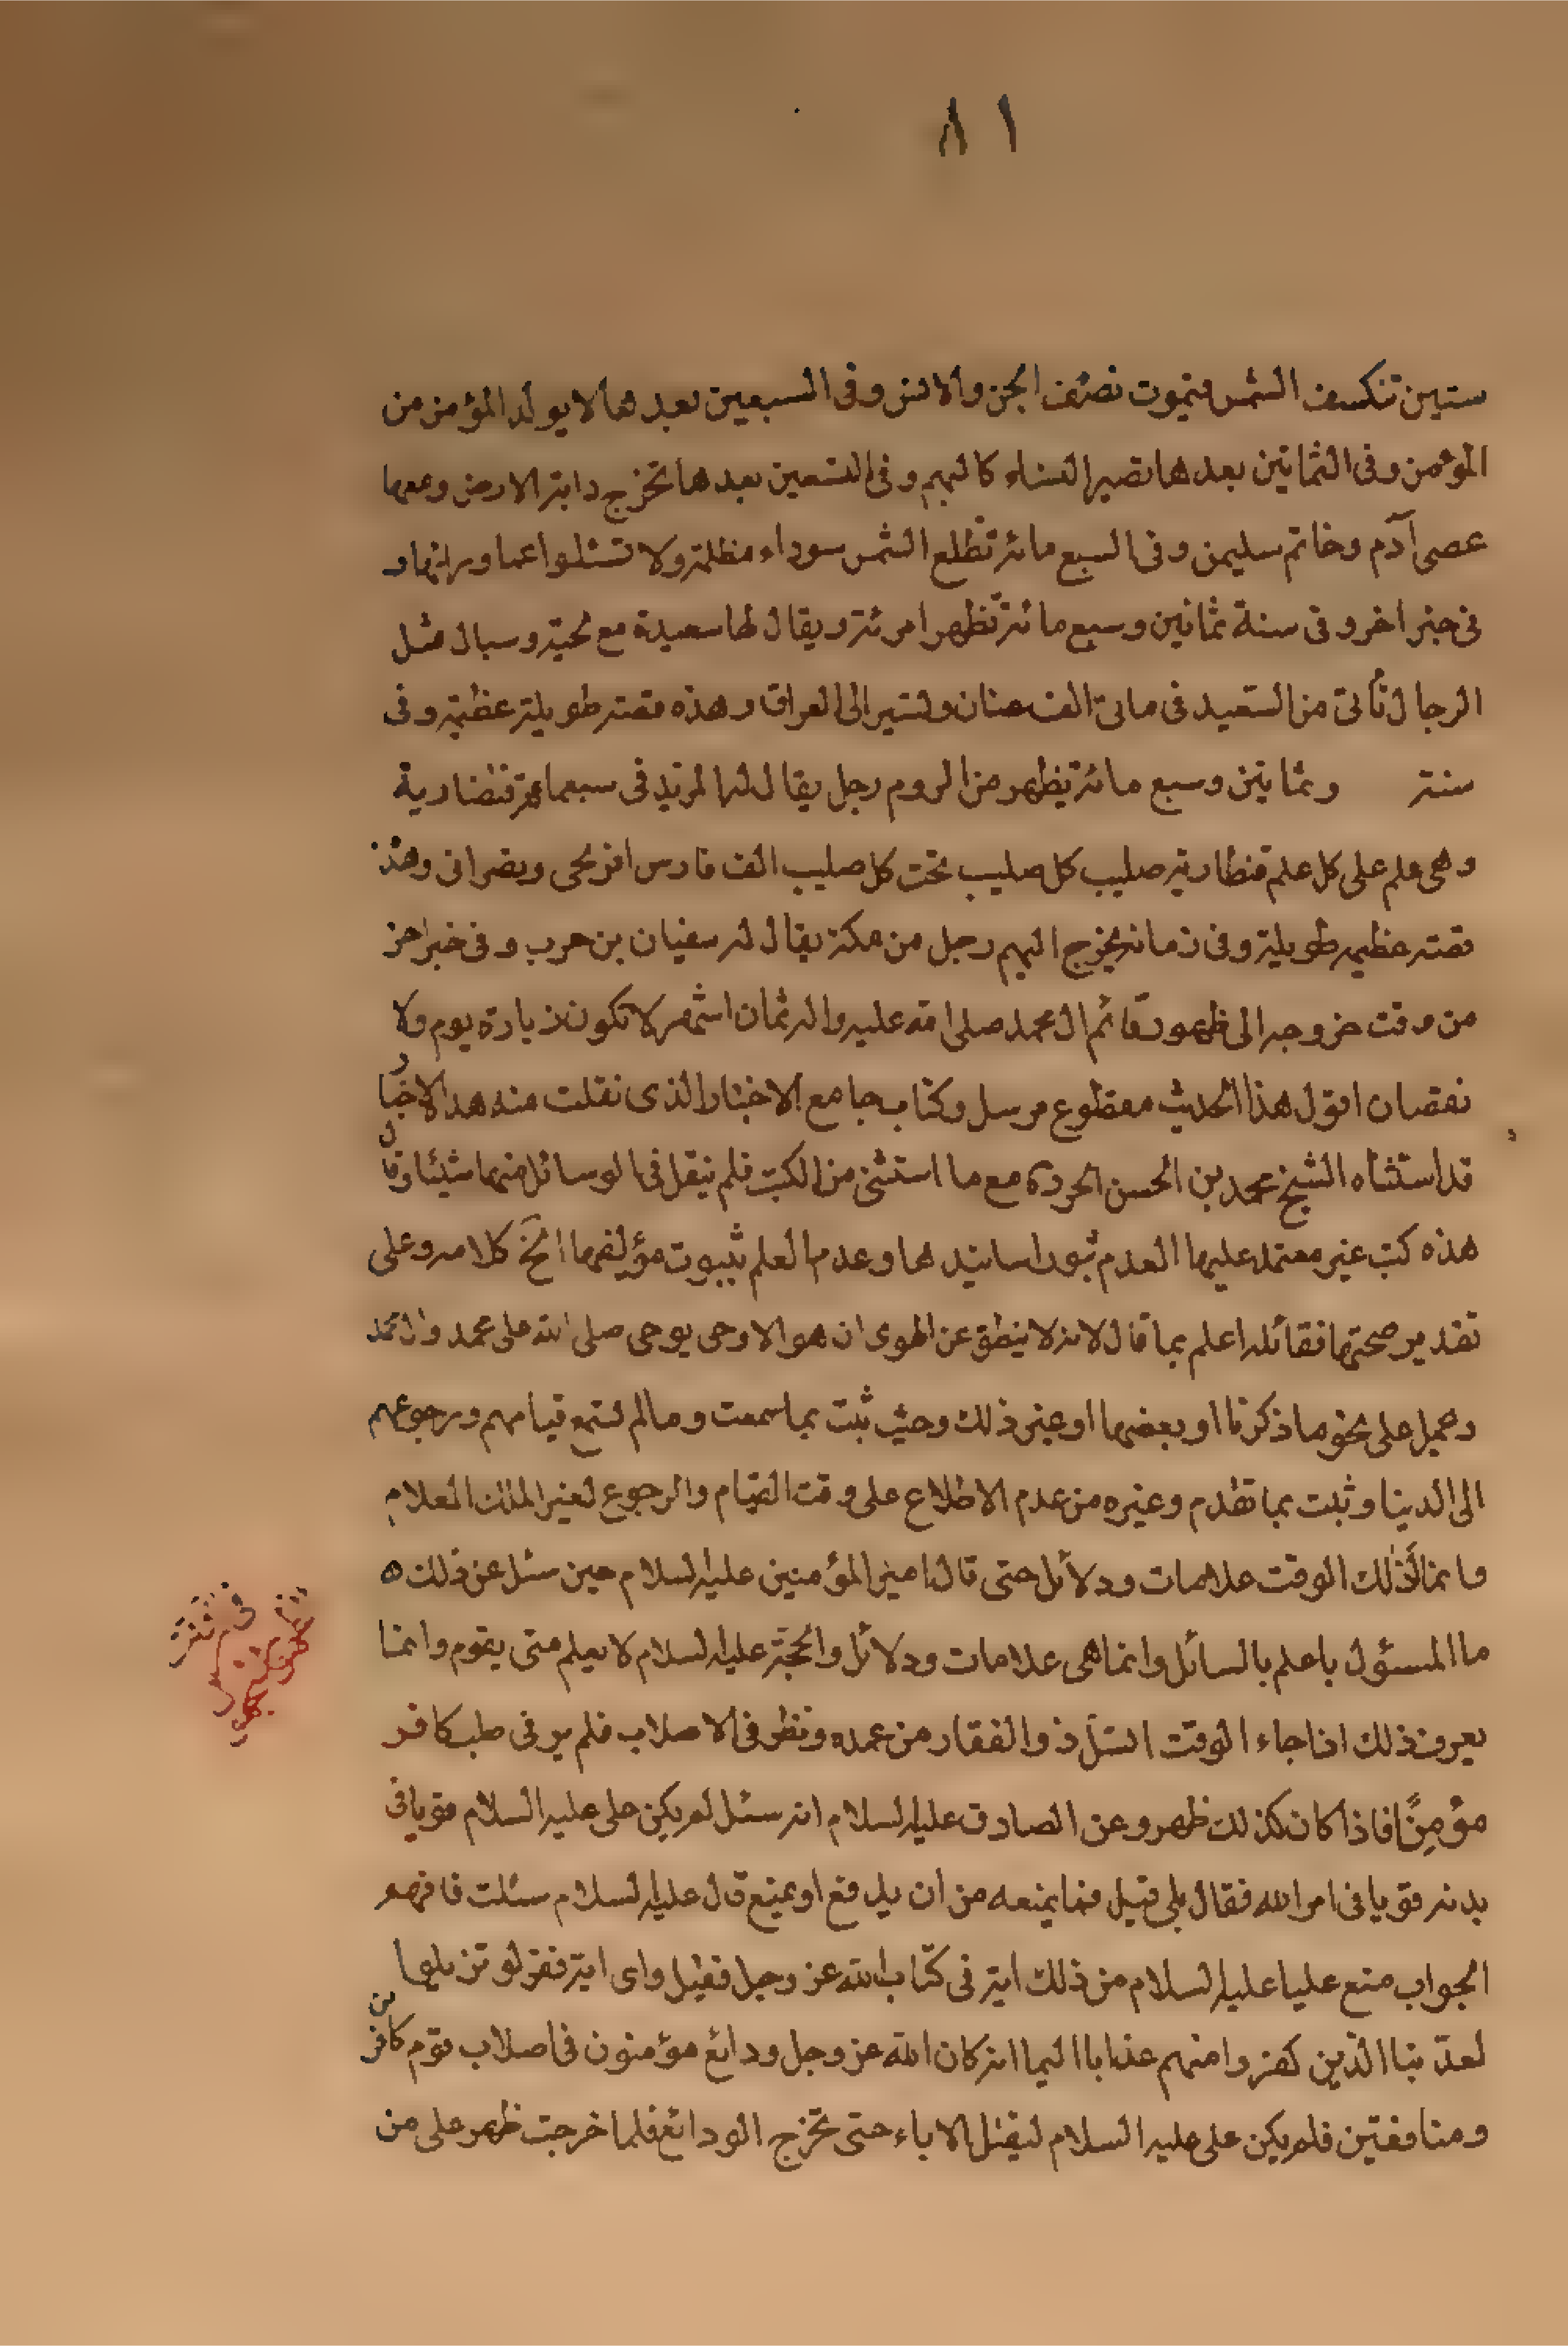 ٨١
ستين تنكسف الشمس فيموت نصف الجن والانس وفى السبعين بعدها لا يولد المؤمن من
المؤمن وفى الثمانين بعدها تصير النساء كالبهم وفى التسعين بعدها تخرج دابة الارض ومعها
عصى آدم وخاتم سليمن وفى السبع مائة تطلع الشمس سوداء مظلمة ولا تسئلوا عما ورائها و
فى خبر اخر وفى سنة ثمانين وسبع مائة تظهر امرئة ويقال لها سعيدة مع لحية وسبال مثل
الرجال تأتى من الصعيد فى مائة الف عنان وتسير الى العراق وهذه قصته طويلة عظيمة وفى
سنة وثمانين وسبع مائة يظهر من الروم رجل يقال له المزيد فى سبعمائة قنطارية
وهى علم على كل علم قنطارية صليب كل صليب تحت كل صليب الف فارس افرنجى ونصرانى وهذه
قصته عظيمة طويلة وفى زمانه يخرج اليهم رجل من مكة يقال له سفيان بن حرب وفى خبر اخر
من وقت خروجه الى ظهور قائم ال محمد صلى الله عليه واله ثمان اشهر لا تكون زيادة يوم ولا
نقصان اقول هذا الحديث مقطوع مرسل وكتاب جامع الاخبار الذى نقلت منه هذا الاخبار
قد استثناه الشيخ محمد بن الحسن الحر ره مع ما استثنى من الكتب فلم ينقل فى الوسائل منها شيئا وقال
هذه كتب غير معتمد عليها لعدم ثبوت اسانيدها وعدم العلم بثبوت مؤلفها الخ كلامه وعلى
تقدير صحتها فقائله اعلم بما قال لانه لا ينطق عن الهوى ان هو الا وحى يوحى صلى الله على محمد وال محمد
وعمل على نحو ما ذكرنا او بعضها او غير ذلك وحيث ثبت بما سمعت وما لم تسمع قيامهم ورجوعهم
الى الدنيا وثبت بما تقدم وغيره من عدم الاطلاع على وقت القيام والرجوع لغير الملك العلام
وانما لذلك الوقت علامات ودلائل حتى قال امير المؤمنين عليه السلام حين سئل عن ذلك
ما المسئول باعلم بالسائل وانما هى علامات ودلائل والحجة عليه السلام لا يعلم متى يقوم وانما
يعرف ذلك اذا جاء الوقت انسل ذو الفقار من غمده ونظر فى الاصلاب فلم ير فى صلب كافر
مؤمِنًا فاذا كان كذلك ظهر وعن الصادق عليه السلام انه سئل لم يكن على عليه السلام قويا فى
بدنه قويا فى امر الله فقال بلى قيل فما يمنعه من ان يدفع او يمنع قال عليه السلام سئلت فافهم
الجواب منع عليا عليه السلام من ذلك اية فى كتاب الله عز وجل فقيل واى اية فقرء لو تزيلوا
لعذبنا الذين كفروا منهم عذابا اليما انه كان الله عز وجل ودائع مؤمنون فى اصلاب قوم كافرين
ومنافقين فلم يكن على عليه السلام ليقتل الاباء حتى تخرج الودائع فلما خرجت ظهر على من